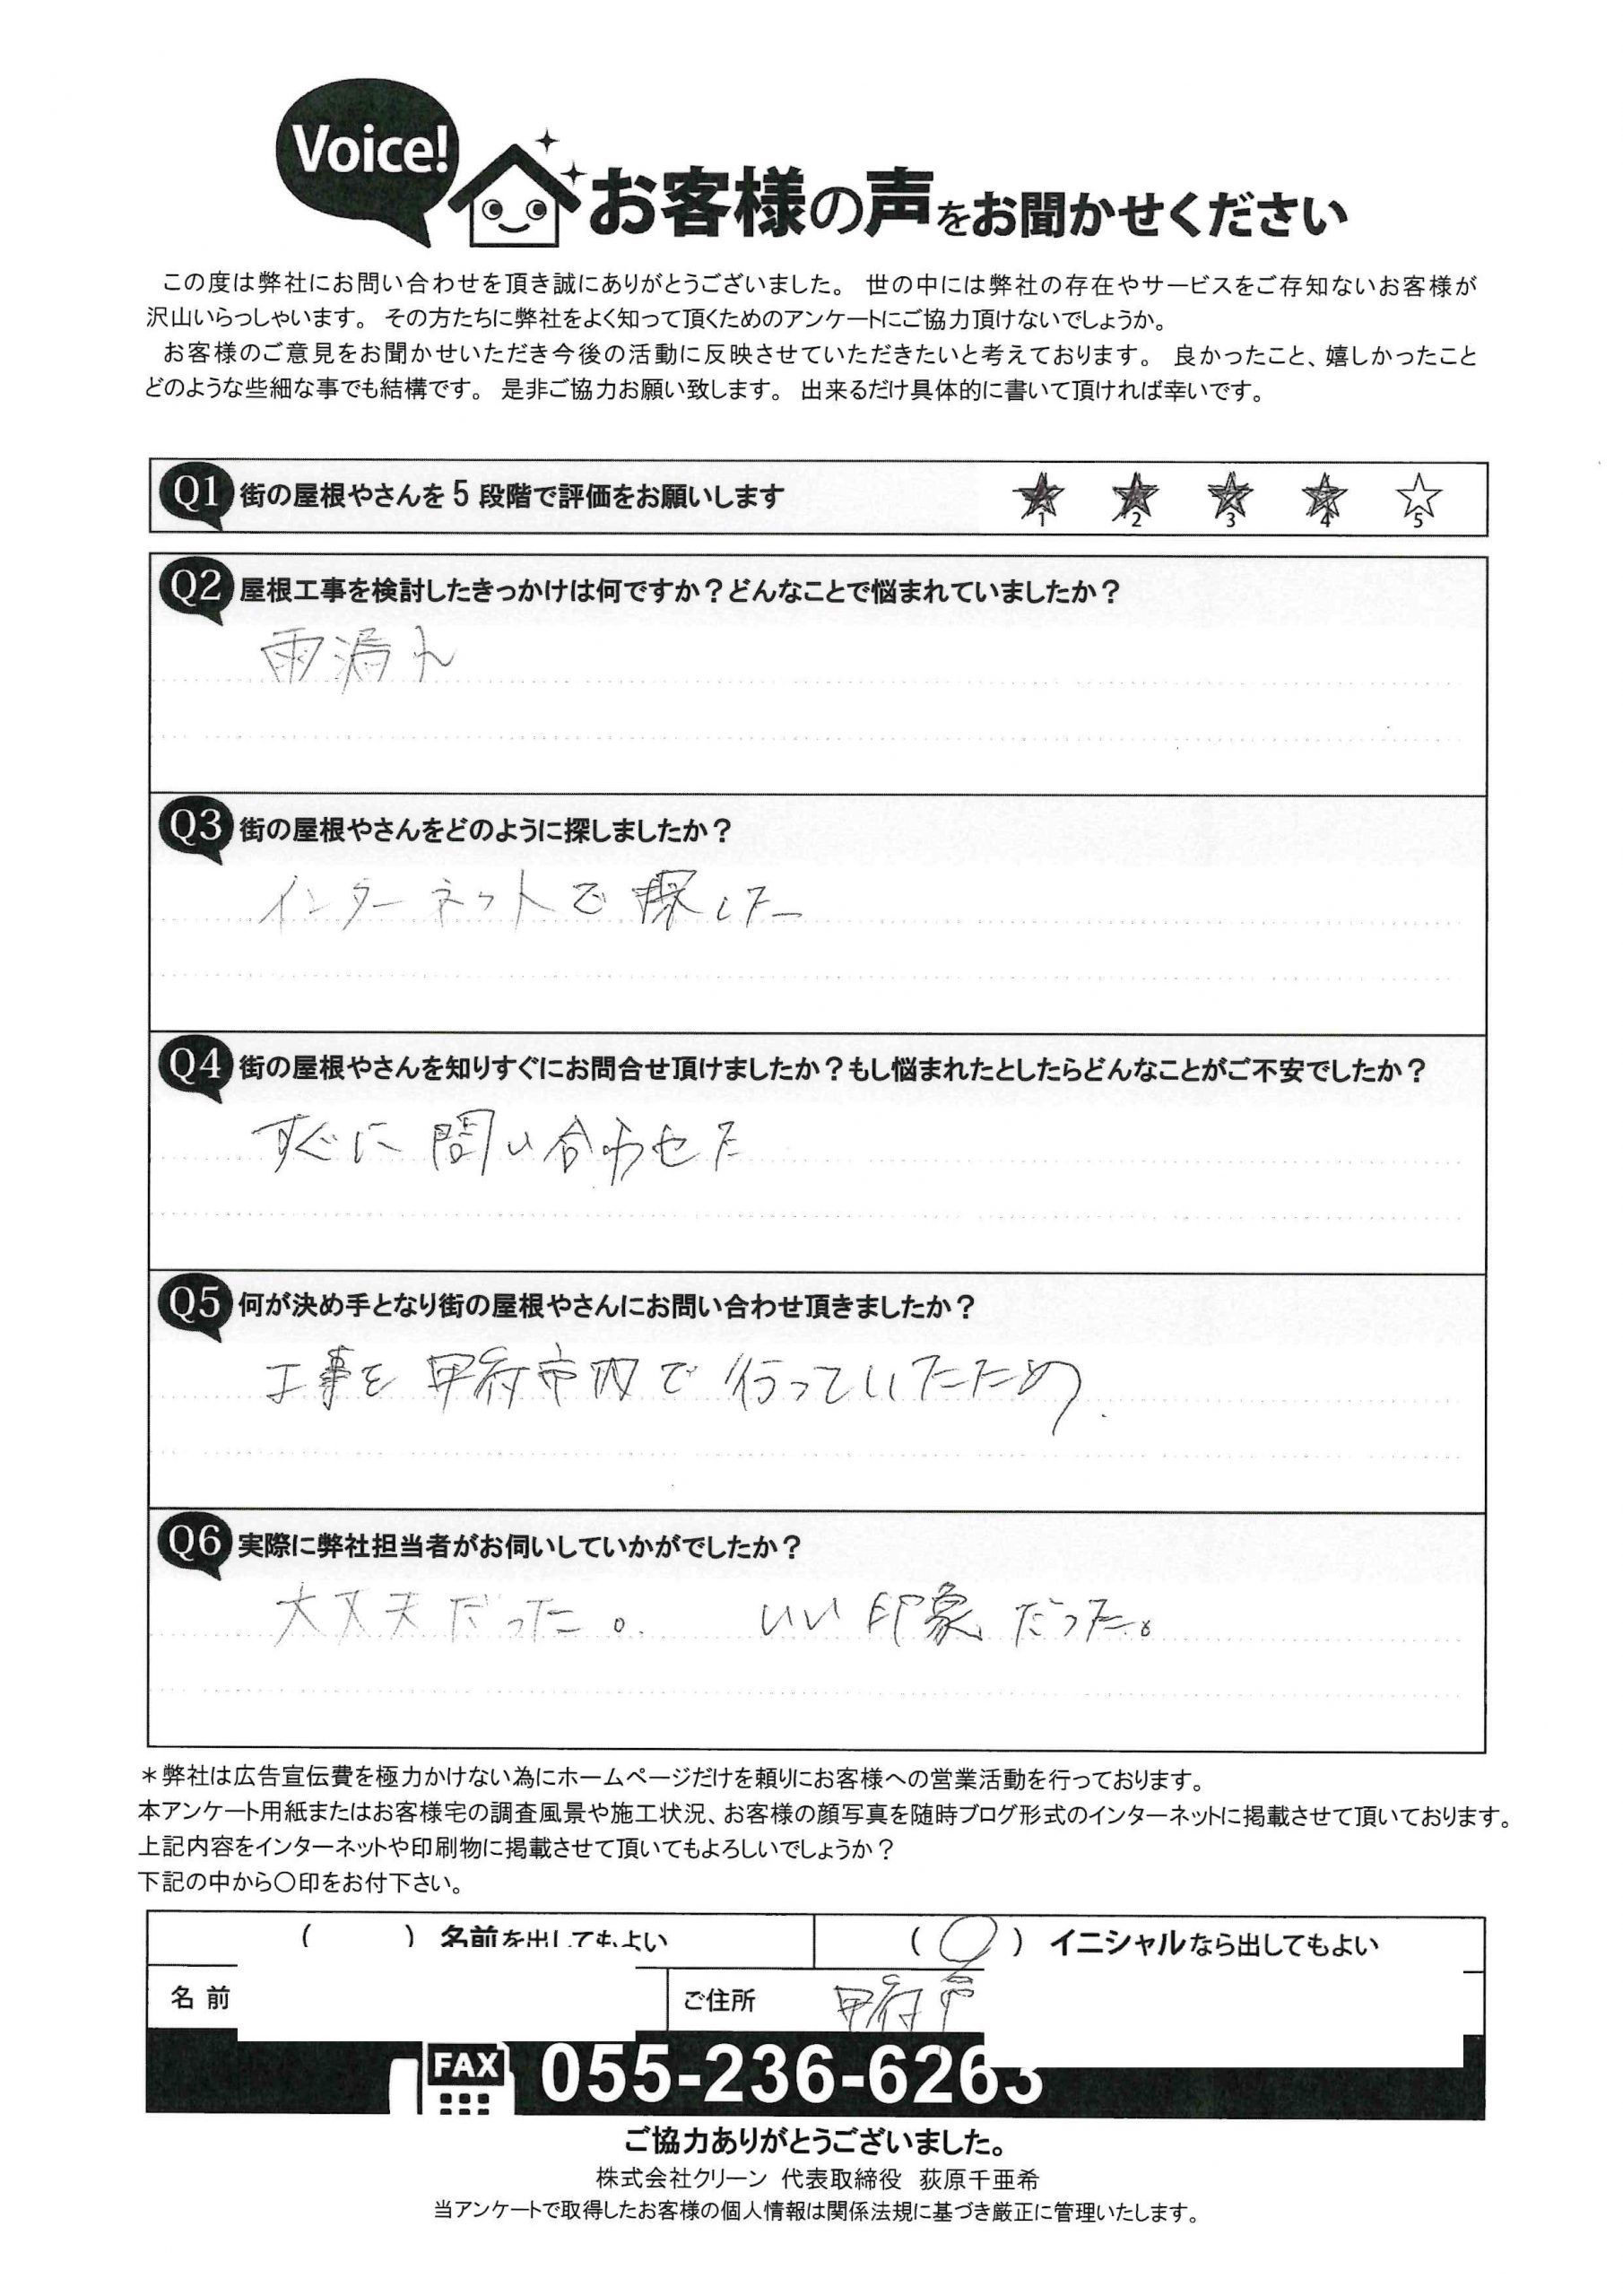 Voice!
お客様の声をお聞かせください
この度は弊社にお問い合わせを頂き誠にありがとうございました。 世の中には弊社の存在やサービスをご存知ないお客様が
沢山いらっしゃいます。 その方たちに弊社をよく知って頂くためのアンケートにご協力頂けないでしょうか。
お客様のご意見をお聞かせいただき今後の活動に反映させていただきたいと考えております。 良かったこと、嬉しかったこと
どのような些細な事でも結構です。 是非ご協力お願い致します。 出来るだけ具体的に書いて頂ければ幸いです。
Q1 街の屋根やさんを5段階で評価をお願いします ★1 ★2 ★3 ★4 ☆5
Q2 屋根工事を検討したきっかけは何ですか?どんなことで悩まれていましたか?
雨漏れ
Q3 街の屋根やさんをどのように探しましたか?
インターネットで探した
Q4 街の屋根やさんを知りすぐにお問合せ頂けましたか?もし悩まれたとしたらどんなことがご不安でしたか?
すぐに問い合わせた
Q5 何が決め手となり街の屋根やさんにお問い合わせ頂きましたか?
工事を甲府市内で行っていたため.
Q6 実際に弊社担当者がお伺いしていかがでしたか?
大丈夫だった。 いい印象だった。
*弊社は広告宣伝費を極力かけない為にホームページだけを頼りにお客様への営業活動を行っております。
本アンケート用紙またはお客様宅の調査風景や施工状況、お客様の顔写真を随時ブログ形式のインターネットに掲載させて頂いております。
上記内容をインターネットや印刷物に掲載させて頂いてもよろしいでしょうか?
下記の中から〇印をお付下さい。
( ) 名前を出してもよい (〇) イニシャルなら出してもよい
名前 ご住所 甲府市
FAX 055-236-6263
ご協力ありがとうございました。
株式会社クリーン 代表取締役 荻原千亜希
当アンケートで取得したお客様の個人情報は関係法規に基づき厳正に管理いたします。